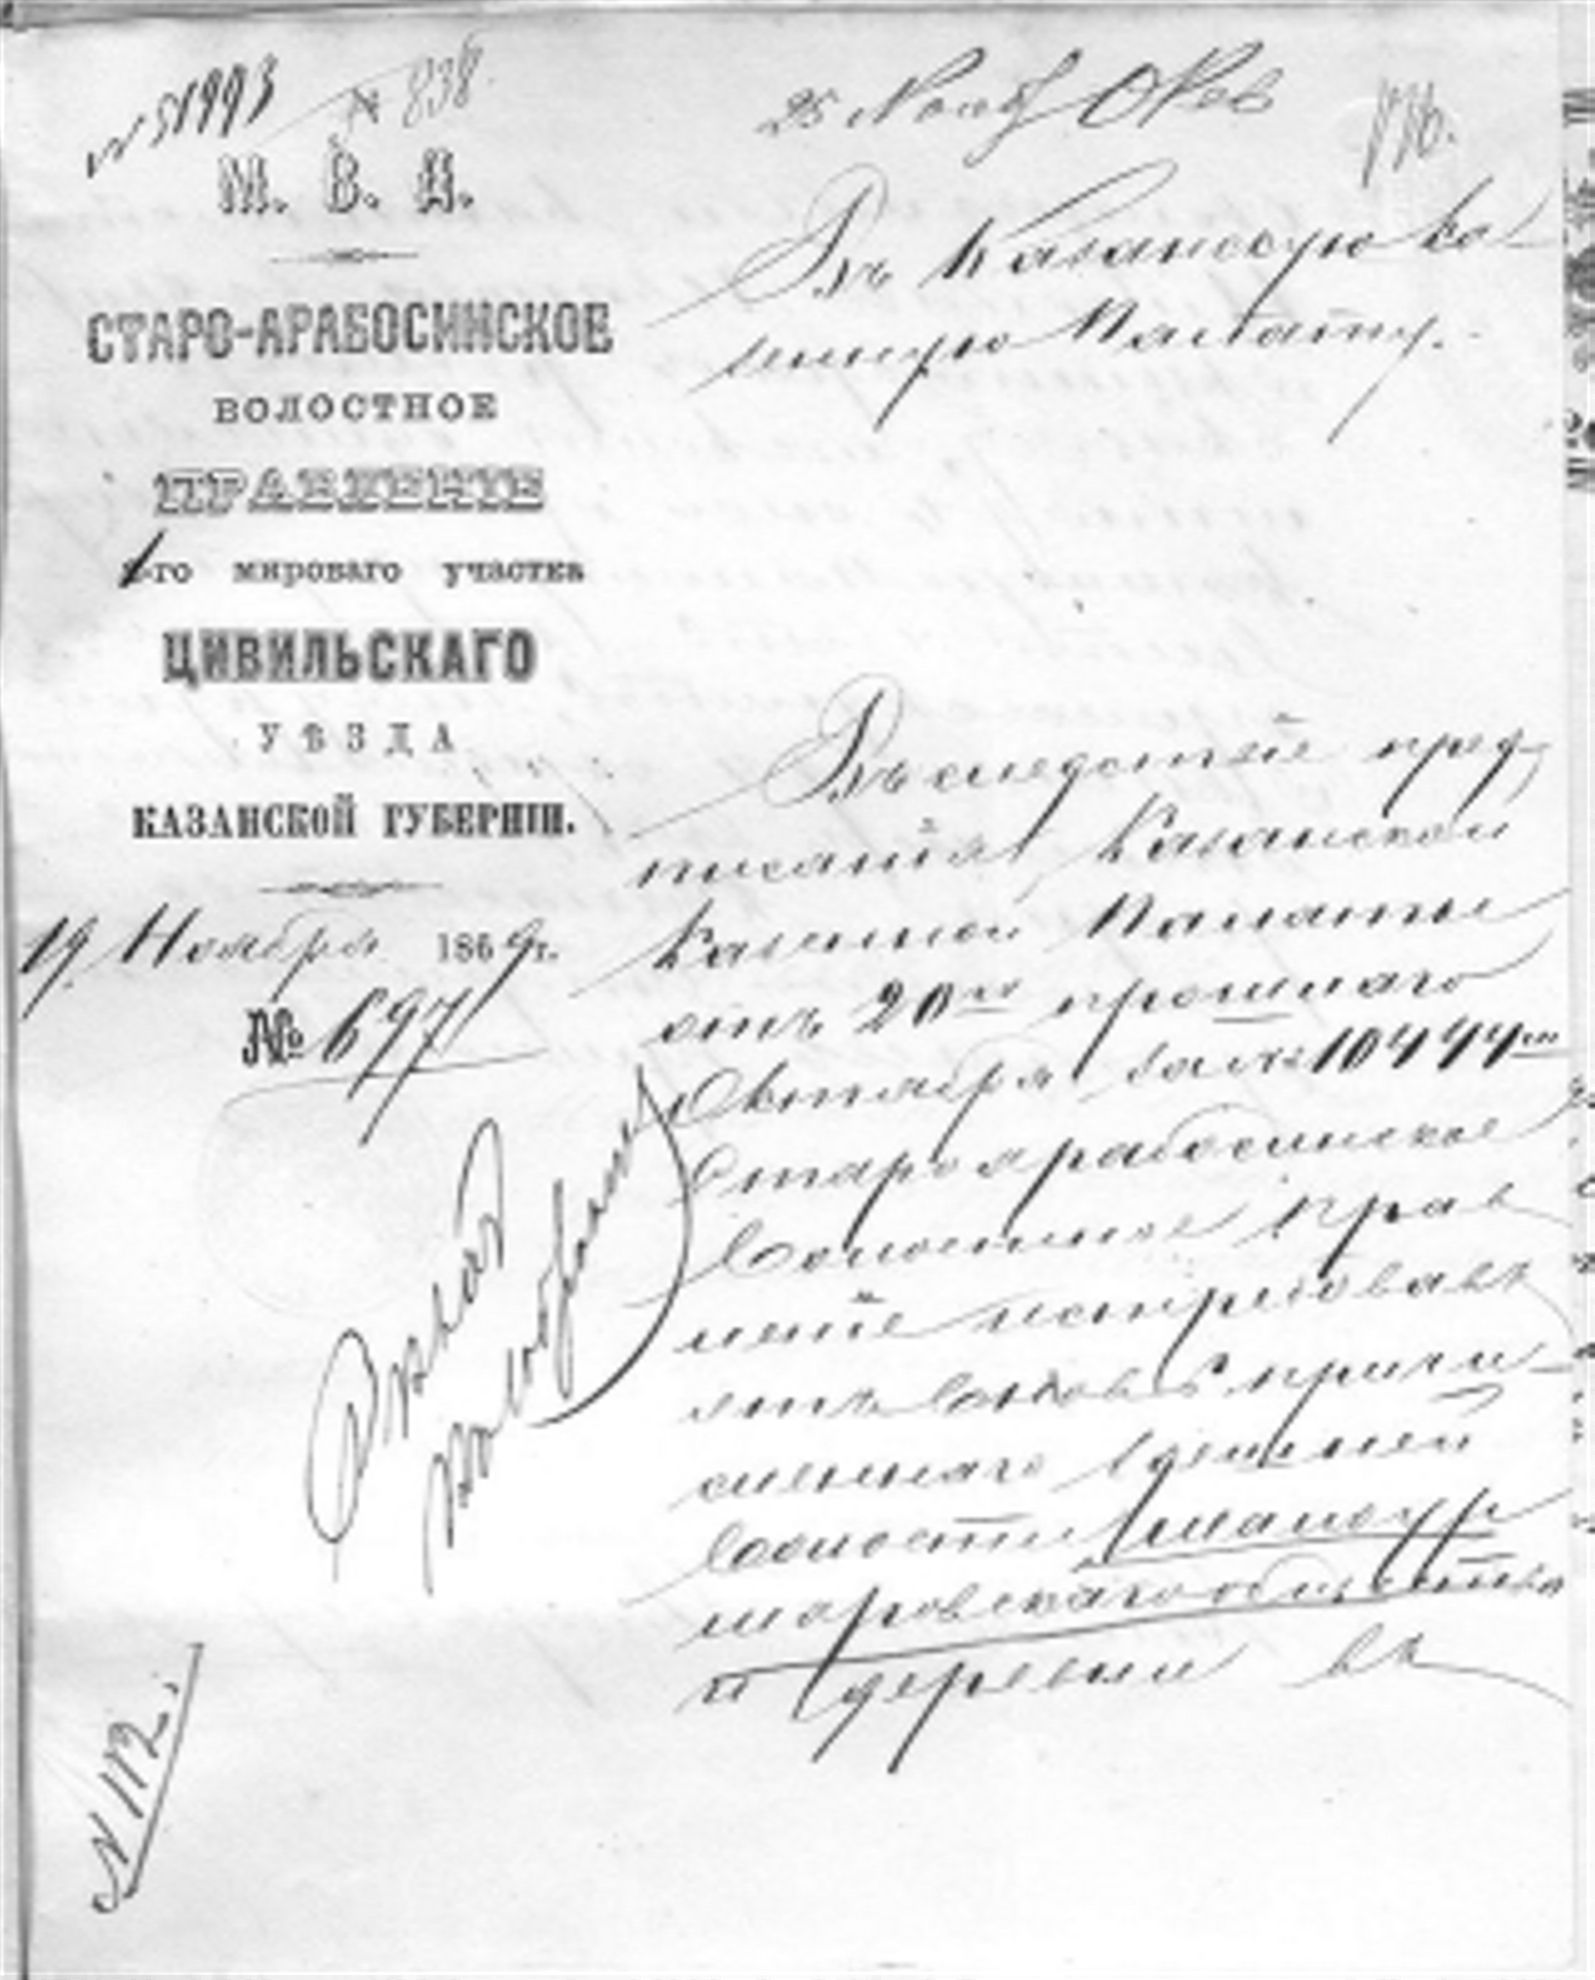 № 838.
25 Нояб
М. В. Д.
СТАРО-АРАБОСИНСКОЕ
ВОЛОСТНОЕ
ПРАВЛЕНІЕ
1-го мироваго участка
ЦИВИЛЬСКАГО
УѢЗДА
КАЗАНСКОЙ ГУБЕРНІИ.
19 Ноября 1869 г.
№ 697
Въ Казанскую Ка-
зенную Палату.
Въ следствіе пред-
писанія Казанской
Казенной Палаты
отъ 20го прошлаго
Октября за № 10444м
Староарабосинское
Волостное Прав
леніе истребовавъ
отъ причи-
сленнаго здешней
волости
шаровскаго общества
и деревни въ
№ 112.